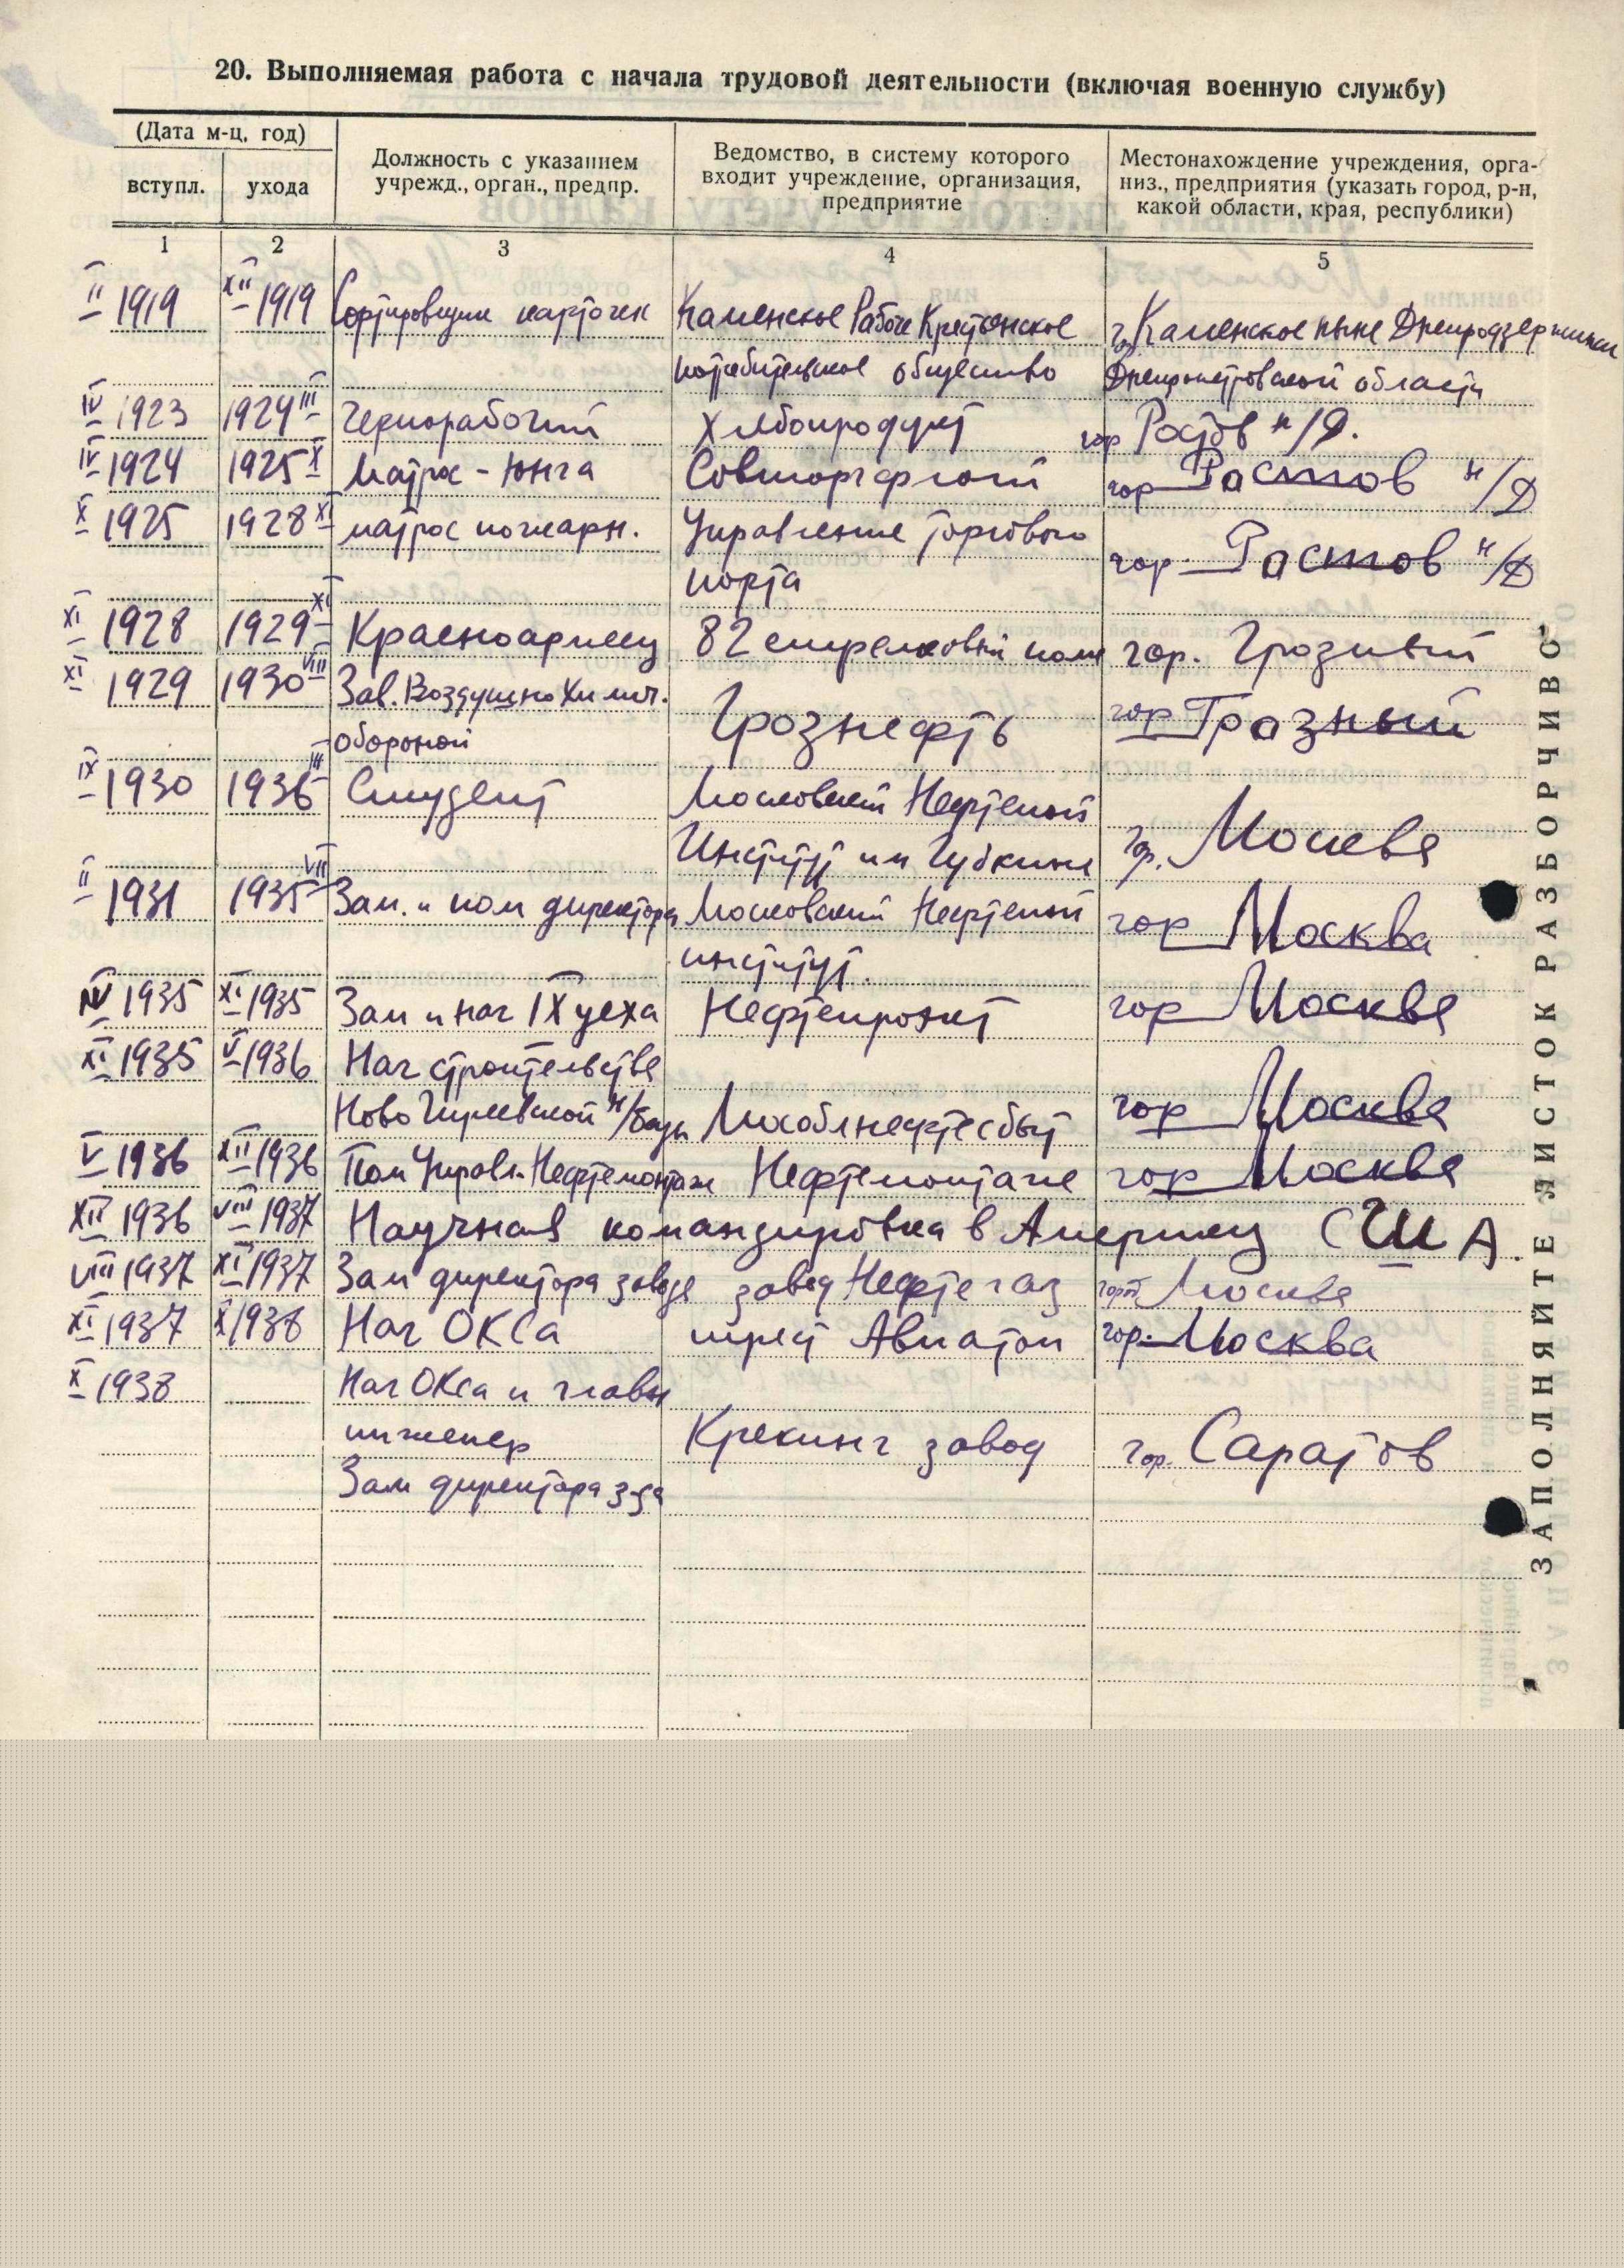 20. Выполняемая работа с начала трудовой деятельности (включая военную службу)
(Дата м-ц, год)
вступл. ухода
Должность с указанием
учрежд., орган., предпр.
Ведомство, в систему которого
входит учреждение, организация,
предприятие
Местонахождение учреждения, орга-
низ., предприятия (указать город, р-н,
какой области, края, республики)
1 2 3 4 5
II 1919 XII 1919 Сортировщик карточек Каменское Рабоче Крестьянское г. Каменское ныне Днепродзержинск
потребительское общество Днепропетровской области
IV 1923 1924 III Чернорабочий Хлебопродукт гор Ростов н/Д.
IV 1924 1925 X Матрос - Юнга Совторгфлот гор Ростов н/Д
X 1925 1928 XI матрос пожарн. Управление торгового гор. Ростов н/Д
порта
XI 1928 1929 XI Красноармеец 82 стрелковый полк гор. Грозный
XI 1929 1930 VIII Зав. Воздушно Химич. Грознефть гор Грозный
обороной
IX 1930 1936 III Студент Московский Нефтяной
Институт им Губкина гор. Москва
II 1931 1935 VII Зам. и пом директора Московский Нефтяной гор Москва
институт.
IV 1935 XI 1935 Зам и нач IX цеха Нефтепроэкт гор Москва
XI 1935 V 1936 Нач строительства
Ново Гиреевской н/базы Мособлнефтесбыт гор Москва
V 1936 XII 1936 Пом Управл. Нефтемонтаж Нефтемонтаж гор Москва
XII 1936 VIII 1937 Научная командировка в Америку США.
VIII 1937 XI 1937 Зам директора завода завод Нефтегаз Москва
XI 1937 X 1938 Нач ОКСа трест Авиатоп гор. Москва
X 1938 Нач ОКСа и главн
инженер Крекинг завод гор. Саратов
Зам директора з-да
ЗАПОЛНЯЙТЕ ЛИСТОК РАЗБОРЧИВО